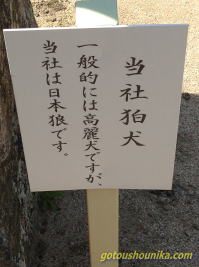 当社狛犬
一般的には高麗犬ですが、
当社は日本狼です。
gotoushounika.com